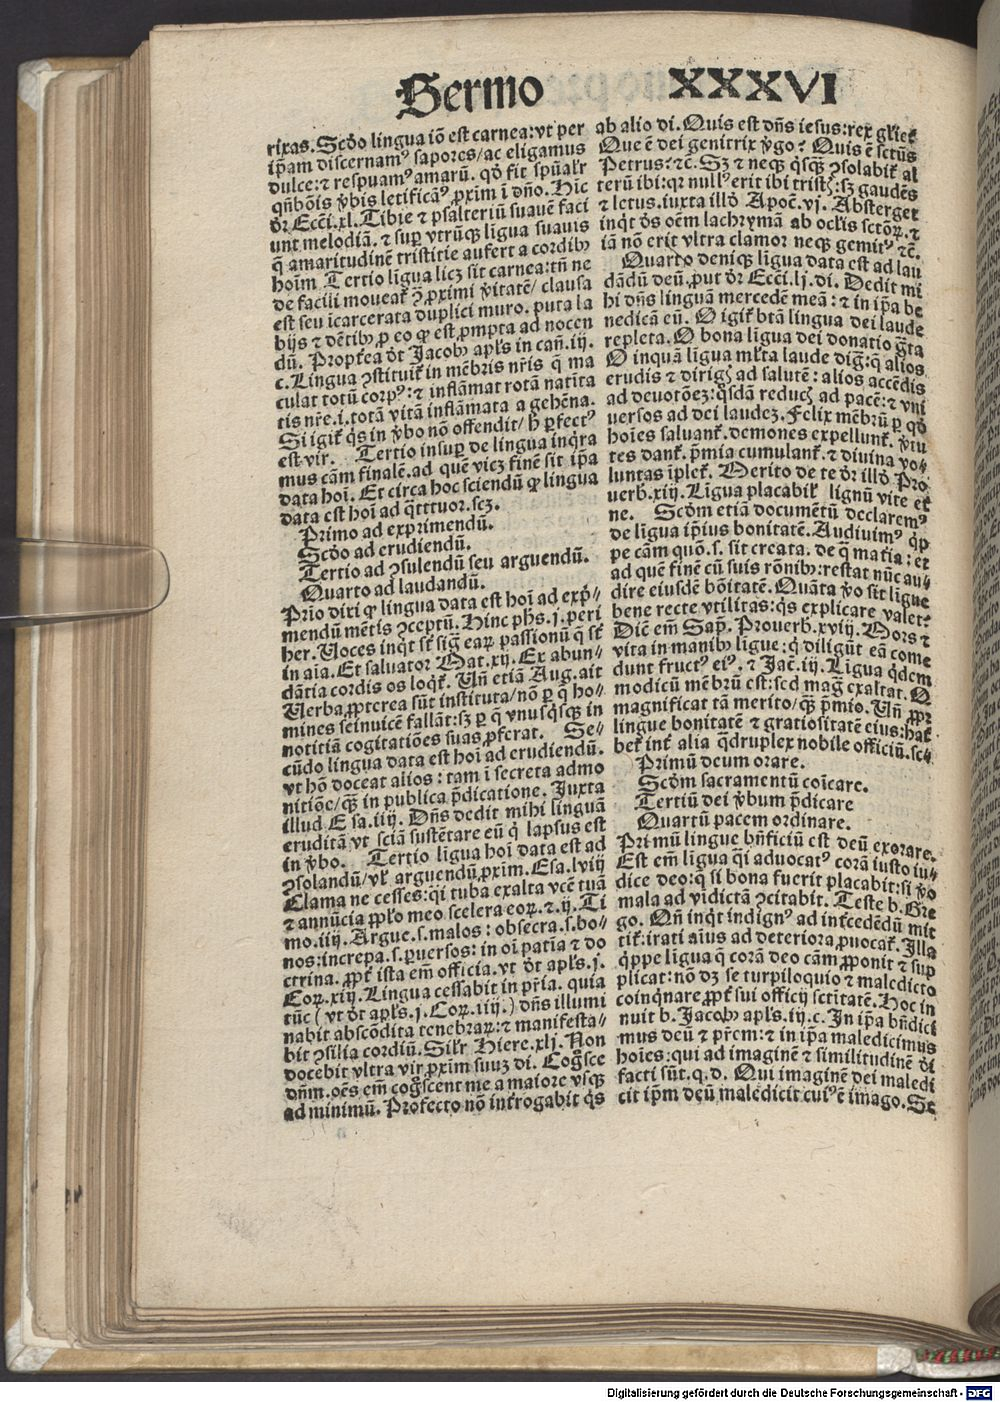 Sermo XXXVI
rixas. Scd̄o lingua iō est carnea: vt per
ip̄am discernamꝰ sapores/ ac eligamus
dulce: ⁊ respuamꝰ amarū. qd̄ fit spūalr̄
qn̄ bōis v̄bis letificamꝰ ꝓximū ī dn̄o. Hic
dr̄ Ecc̄i. xl. Tibie ⁊ psalteriū suauē faci
unt melodiā. ⁊ suꝑ vtrūqꝫ līgua suauis
q̄ amaritudinē tristitie aufert a cordibꝰ
hoīm Tertio līgua licꝫ sit carnea: tn̄ ne
de facili moueat̄ ꝯ ꝓximi v̄itatē/ clausa
est seu īcarcerata duplici muro. puta la
bijs ⁊ dētibꝰ ꝓ eo ꝙ est ꝓmpta ad nocen
dū. Propt̄ea dt̄ Jacobꝰ apl̄s in cañ. iij.
c. Lingua ꝯstituit̄ in mēbris nr̄is q̄ ma
culat totū corpꝰ: ⁊ inflāmat rotā natīta
tis nr̄e. i. totā vitā inflāmata a gehēna.
Si igit̄ q̄s in v̄bo nō offendit/ h̄ ꝑfectꝰ
est vir. Tertio insuꝑ de lingua inq̄ra
mus cām finalē. ad quē vicꝫ finē sit ip̄a
data hoī. Et circa hoc sciendū ꝙ lingua
data est hoī ad q̄ttuor. scꝫ.
Primo ad exprimendū.
Scd̄o ad erudiendū.
Tertio ad ꝯsulendū seu arguendū.
Quarto ad laudandū.
Prīo dixi ꝙ lingua data est hoī ad exp̄-
mendū mētis ꝯceptū. Hinc ph̄s. j. peri
her. Uoces inqt̄ st̄ sig̅ eaꝝ passionū q̄ st̄
in aīa. Et saluator Mat. xij. Ex abun-
dātia cordis os loqt̄. Uñ etiā Aug. ait
Uerba ꝓpterea sūt instituta/ nō ꝑ q̄ ho-
mines seinuicē fallāt: sꝫ ꝑ q̄ vnusq̄sqꝫ in
notitiā cogitatiōes suas ꝓferat. Se-
cūdo lingua data est hoī ad erudiendū.
vt hō doceat alios: tam ī secreta admo
nitiōe/ qꝫ̄ in publica p̄dicatione. Juxta
illud Esa. iiij. Dn̄s dedit mihi linguā
eruditā vt sciā sustētare eū q̇ lapsus est
in v̄bo. Tertio līgua hoī data est ad
ꝯsolandū/ vl̄ arguendū ꝓxim. Esa. lviij
Clama ne cesses: q̄i tuba exalta vcē tuā
⁊ annūcia ppl̄o meo scelera eoꝝ. ⁊. ij. Ti
mo. iiij. Argue. s. malos: obsecra. s. bo-
nos: increpa. s. ꝑuersos: in oī patīa ⁊ do
ctrina. ꝓpt̄ ista em̄ officia. vt dt̄ apl̄s. j.
Coꝝ. xiij. Lingua cessabit in pr̄ia. quia
tūc (vt dt̄ apl̄s. j. Coꝝ. iiij.) dn̄s illumi
nabit abscōdita tenebraꝝ: ⁊ manifesta-
bit ꝯsilia cordiū. Silr̄ Hiere. xlj. Non
docebit vltra vir ꝓxim suuꝫ di. Cog̅sce
dn̄m. oēs em̄ cog̅scent me a maiore vsqꝫ
ad minimū. Profecto nō int̄rogabit q̄s
ab alio di. Quis est dn̄s iesus: rex gl̄iet̄
Que ē dei genitrix v̄go? Quis ē sct̄us
Petrus? ⁊c̄. Sꝫ ⁊ neqꝫ q̄sqꝫ ꝯsolabit̄ al
terū ibi: qr nullꝰ erit ibi tristꝭ: sꝫ gaudēs
⁊ letus. iuxta illd̄ Apoc̄. vj. Absterget
inqt̄ d̄s oēm lachrymā ab ocl̄is sctōꝝ. ⁊
iā nō erit vltra clamor neqꝫ gemitꝰ ⁊c̄.
Quarto deniqꝫ līgua data est ad lau
dādū deū, put dr̄ Ecc̄i. lj. di. Dedit mi
hi dn̄s linguā mercedē meā: ⁊ in ip̄a be
nedicā eū. O igit̄ btā lingua dei laude
repleta. O bona līgua dei donatio g̅ta
O inquā līgua ml̄ta laude dig̅: q̄ alios
erudis ⁊ dirigꝭ ad salutē: alios accēdis
ad deuotōeꝫ: q̄sdā reducꝭ ad pacē: ⁊ vni
uersos ad dei laudeꝫ. Felix mēbrū ꝑ qd̄
hoīes saluant̄. demones expellunt̄. v̄tu
tes dant̄. p̄mia cumulant̄. ⁊ diuina vo-
luntas īplet̄. Merito de te dr̄ illd̄ Pro
uerb. xij. Līgua placabil̄ lignū vite et̄
ne. Scd̄m etiā documētū declaremꝰ
de līgua ip̄ius bonitatē. Audiuimꝰ q̄p
pe cām quō. s. sit creata. de q̄ mat̄ia: et
ad quē finē cū suis rōnibꝰ: restat nūc au-
dire eiusdē bōitatē. Quāta v̄o sit līgue
bene recte vtilitas: q̄s explicare valet?
Dic̄ em̄ Sap̄. Prouerb. xviij. Mors ⁊
vita in manibꝰ līgue: q̇ diligūt eā come
dunt fructꝰ eiꝰ. ⁊ Jac̄. iij. Līgua q̄dem
modicū mēbrū est: sed mag̅ exaltat. O
magnificat tā merito/ qꝫ̄ p̄mio. Uñ ꝓpr̄
lingue bonitatē ⁊ gratiositatē eius: hab̄
bet int̄ alia q̄druplex nobile officiū. sc-
Primū deum orare.
Scd̄m sacramentū coīcare.
Tertiū dei v̄bum p̄dicare
Quartū pacem ordinare.
Primū lingue bn̄ficiū est deū exorare.
Est em̄ līgua q̄i aduocatꝰ corā iusto iu-
dice deo: q̄ si bona fuerit placabit: si v̄o
mala ad vidictā ꝯcitabit. Teste b. Gre
go. Oñ inqt̄ indignꝰ ad int̄cedēdū mit
tit̄: irati aīus ad deteriora ꝓuocat̄. Illa
q̄ppe līgua q̄ corā deo cām ꝓponit ⁊ sup
plicat: nō dꝫ se turpiloquio ⁊ maledicto
coinq̄nare ꝓpt̄ sui officij sctītatē. Hoc in
nuit b. Jacobꝰ apl̄s. iij. c. In ip̄a bn̄dici
mus deū ⁊ pr̄em: ⁊ in ip̄a maledicimus
hoīes: qui ad imaginē ⁊ similitudinē di
facti sūt. q. d. Qui imaginē dei maledi
cit ip̄m deū maledicit cuiꝰ ē imago. Se
Digitalisierung gefördert durch die Deutsche Forschungsgemeinschaft - DFG